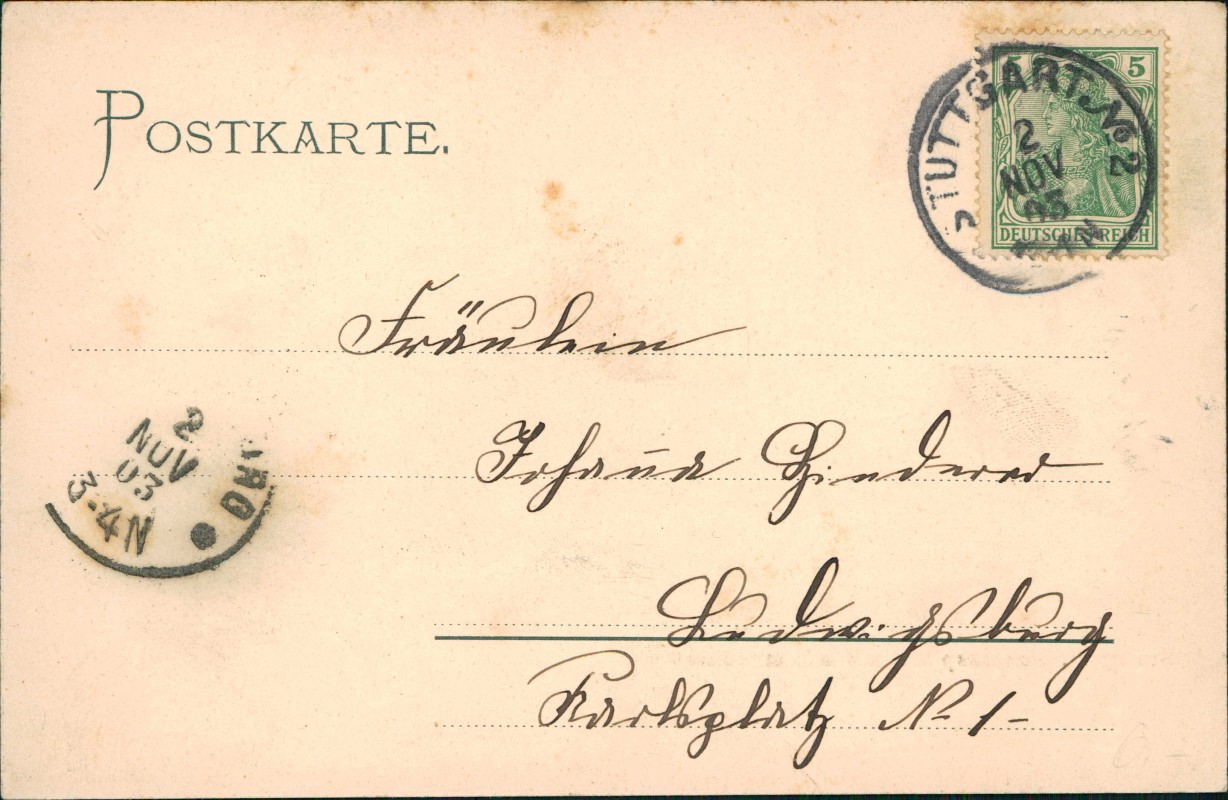 POSTKARTE.
5 5
DEUTSCHES REICH
STUTTGART. No 2
2
NOV
03
Fräulein
Johana
Ludwigsburg
Karlsplatz N- 1-
2
NOV
03
3-4N